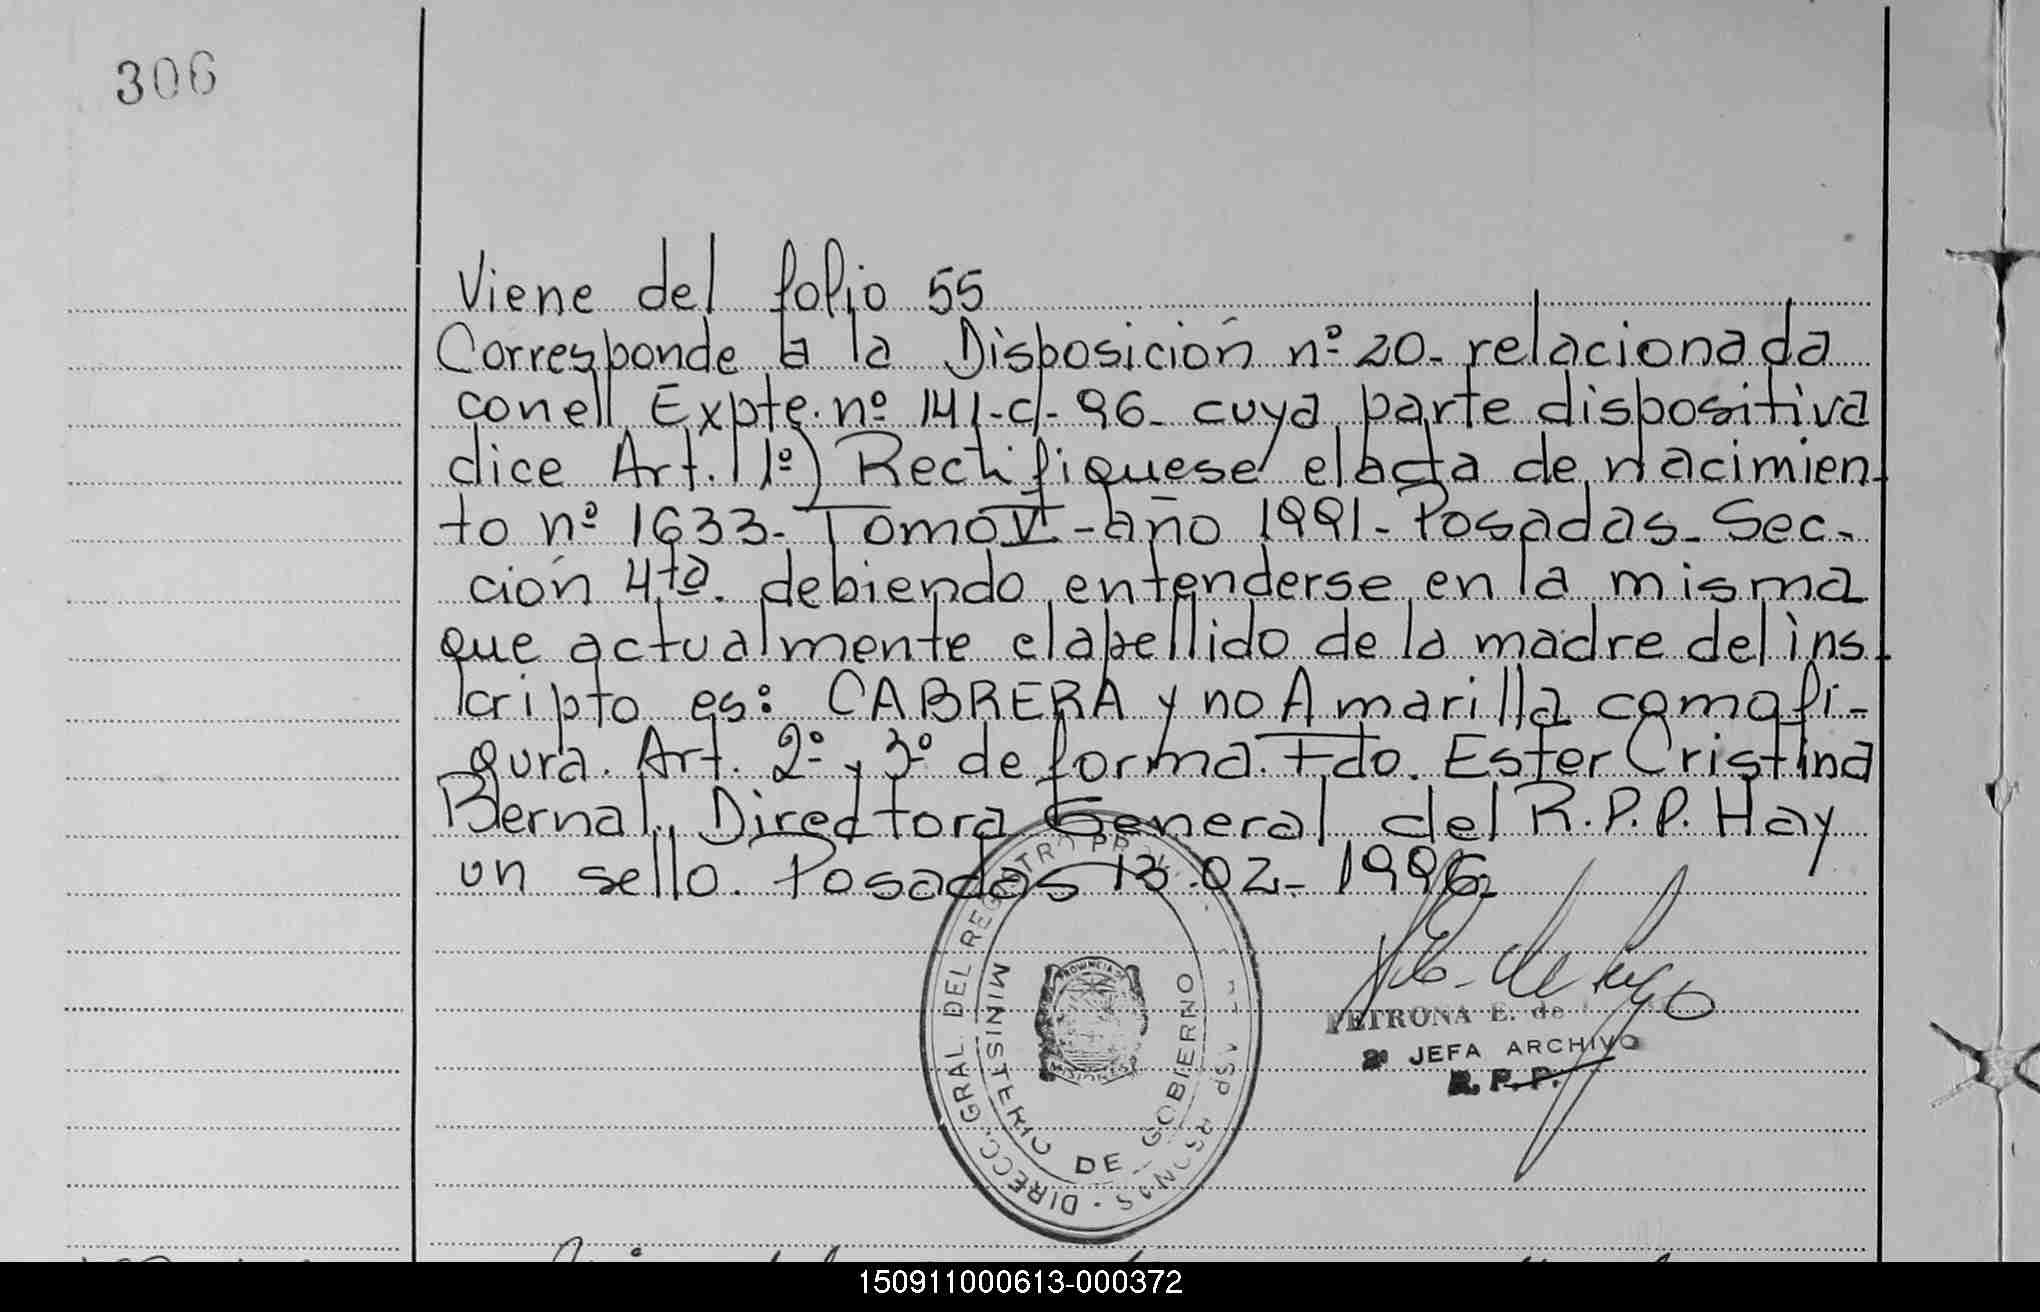 306
Viene del folio 55
Corresponde a la Disposición nº 20- relacionada
con ell Expte. nº 141-c/-96- cuya parte dispositiva
dice Art. 1º) Rectifiquese el acta de nacimien-
to nº 1633- Tomo VI - año 1991- Posadas- Sec-
ción 4ta. debiendo entenderse en la misma
que actualmente el apellido de la madre del ins-
cripto es: CABRERA y no Amarilla como fi-
gura. Art. 2º y 3º de forma. Fdo. Ester Cristina
Bernal, Directora General del R.P.P. Hay
un sello. Posadas 13-02-1996
DIRECC. GRAL. DEL REGISTRO
MINISTERIO DE GOBIERNO
PROVINCIA DE
MISIONES
PETRONA E. de
JEFA ARCHIVO
R. P. P.
150911000613-000372